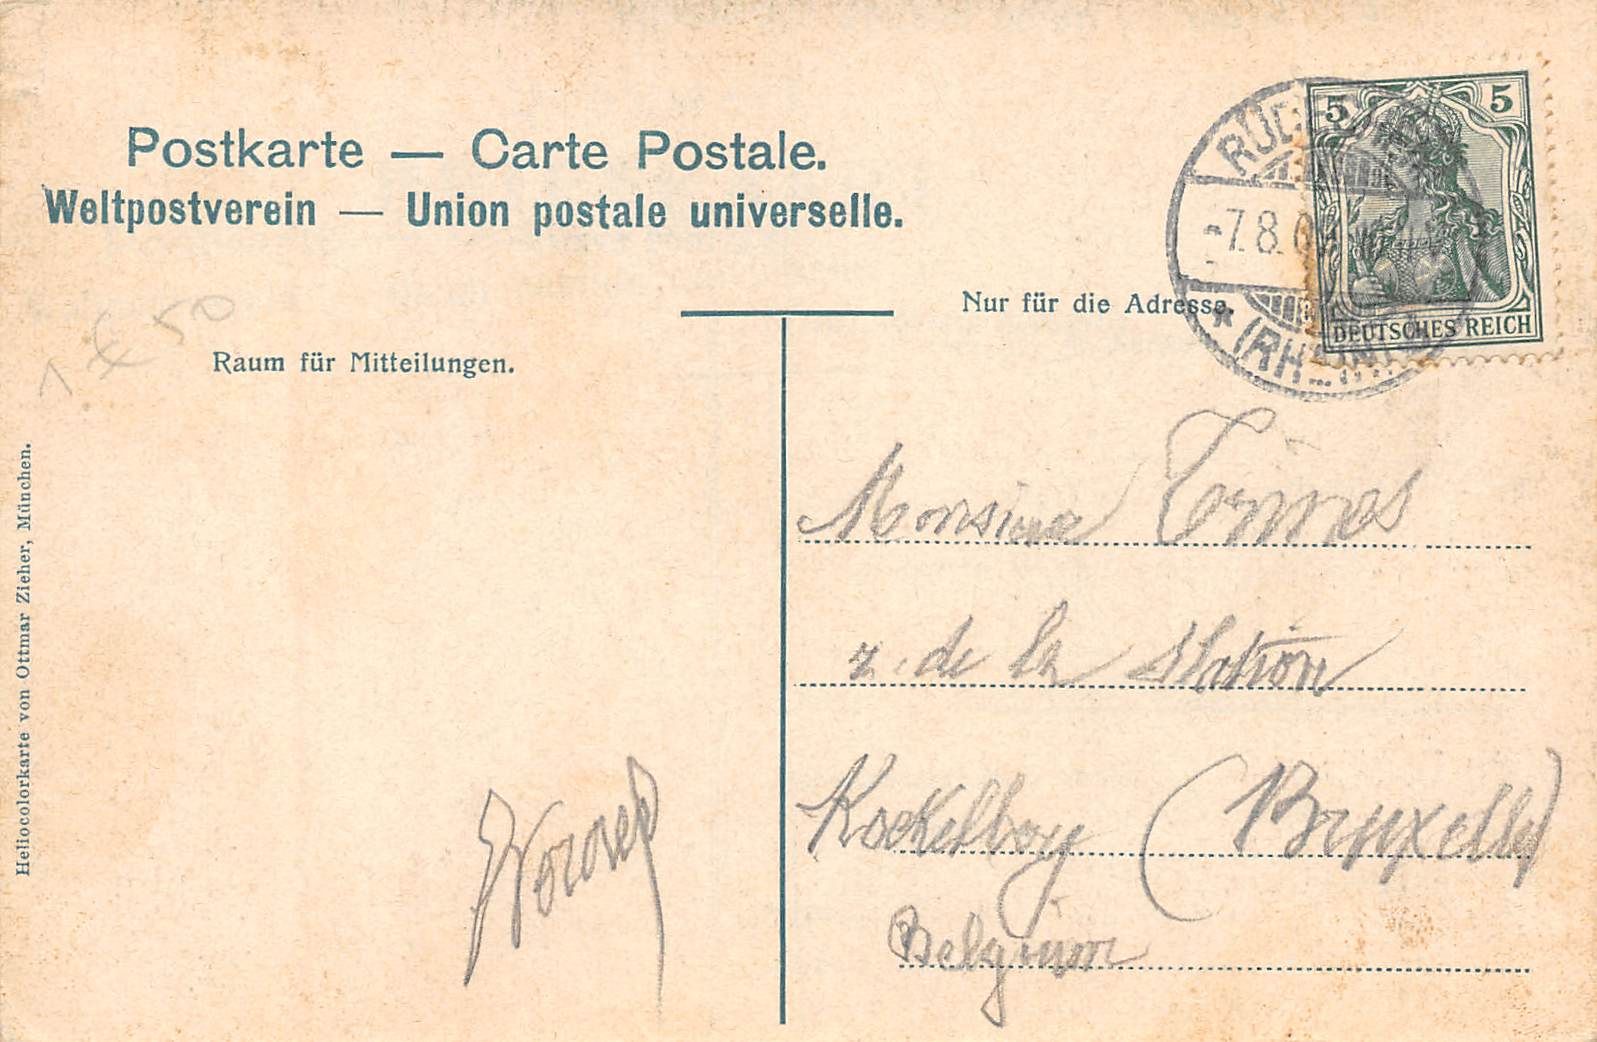 Postkarte — Carte Postale.
Weltpostverein — Union postale universelle.
Nur für die Adresse.
Raum für Mitteilungen.
1 € 50
5 5
DEUTSCHES REICH
-7.8.0
Heliocolorkarte von Ottmar Zieher, München.
Monsieur
r. de la Station
Koekelberg (Bruxelles)
Belgium